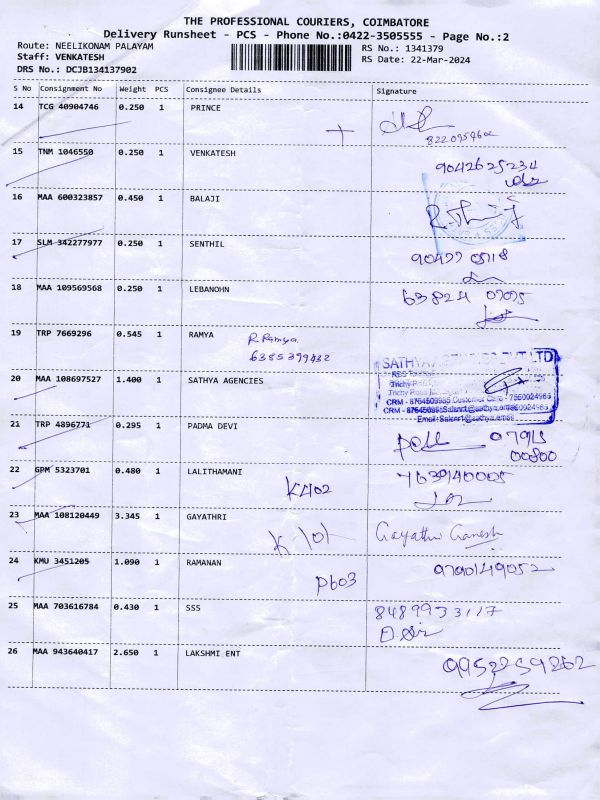 THE PROFESSIONAL COURIERS, COIMBATORE
Delivery Runsheet - PCS - Phone No.:0422-3505555 - Page No.:2
Route: NEELIKONAM PALAYAM
Staff: VENKATESH
DRS No.: DCJB134137902
RS No.: 1341379
RS Date: 22-Mar-2024
S No Consignment No Weight PCS Consignee Details Signature
14 TCG 40904746 0.250 1 PRINCE
15 TNM 1046550 0.250 1 VENKATESH
9042625234
16 MAA 600323857 0.450 1 BALAJI
17 SLM 342277977 0.250 1 SENTHIL
18 MAA 109569568 0.250 1 LEBANOHN
63824 07075
19 TRP 7669296 0.545 1 RAMYA R. Ramya
6385399432
20 MAA 108697527 1.400 1 SATHYA AGENCIES
SATHYA AGENCIES PVT LTD
21 TRP 4896771 0.295 1 PADMA DEVI
22 GPM 5323701 0.480 1 LALITHAMANI K402
7639140005
23 MAA 108120449 3.345 1 GAYATHRI K 101 Gayathri Ganesh
24 KMU 3451205 1.090 1 RAMANAN P603 9790149052
25 MAA 703616784 0.430 1 SSS 8489933117
26 MAA 943640417 2.650 1 LAKSHMI ENT 9952259262